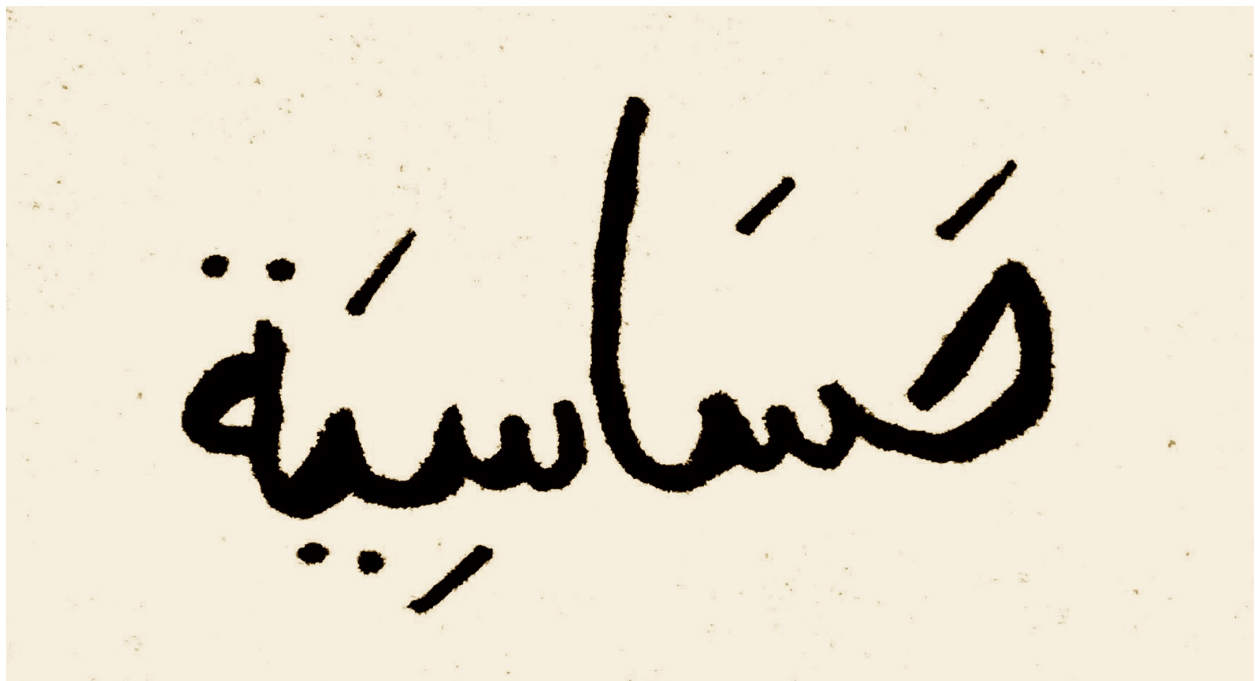 حَسَاسِيَة